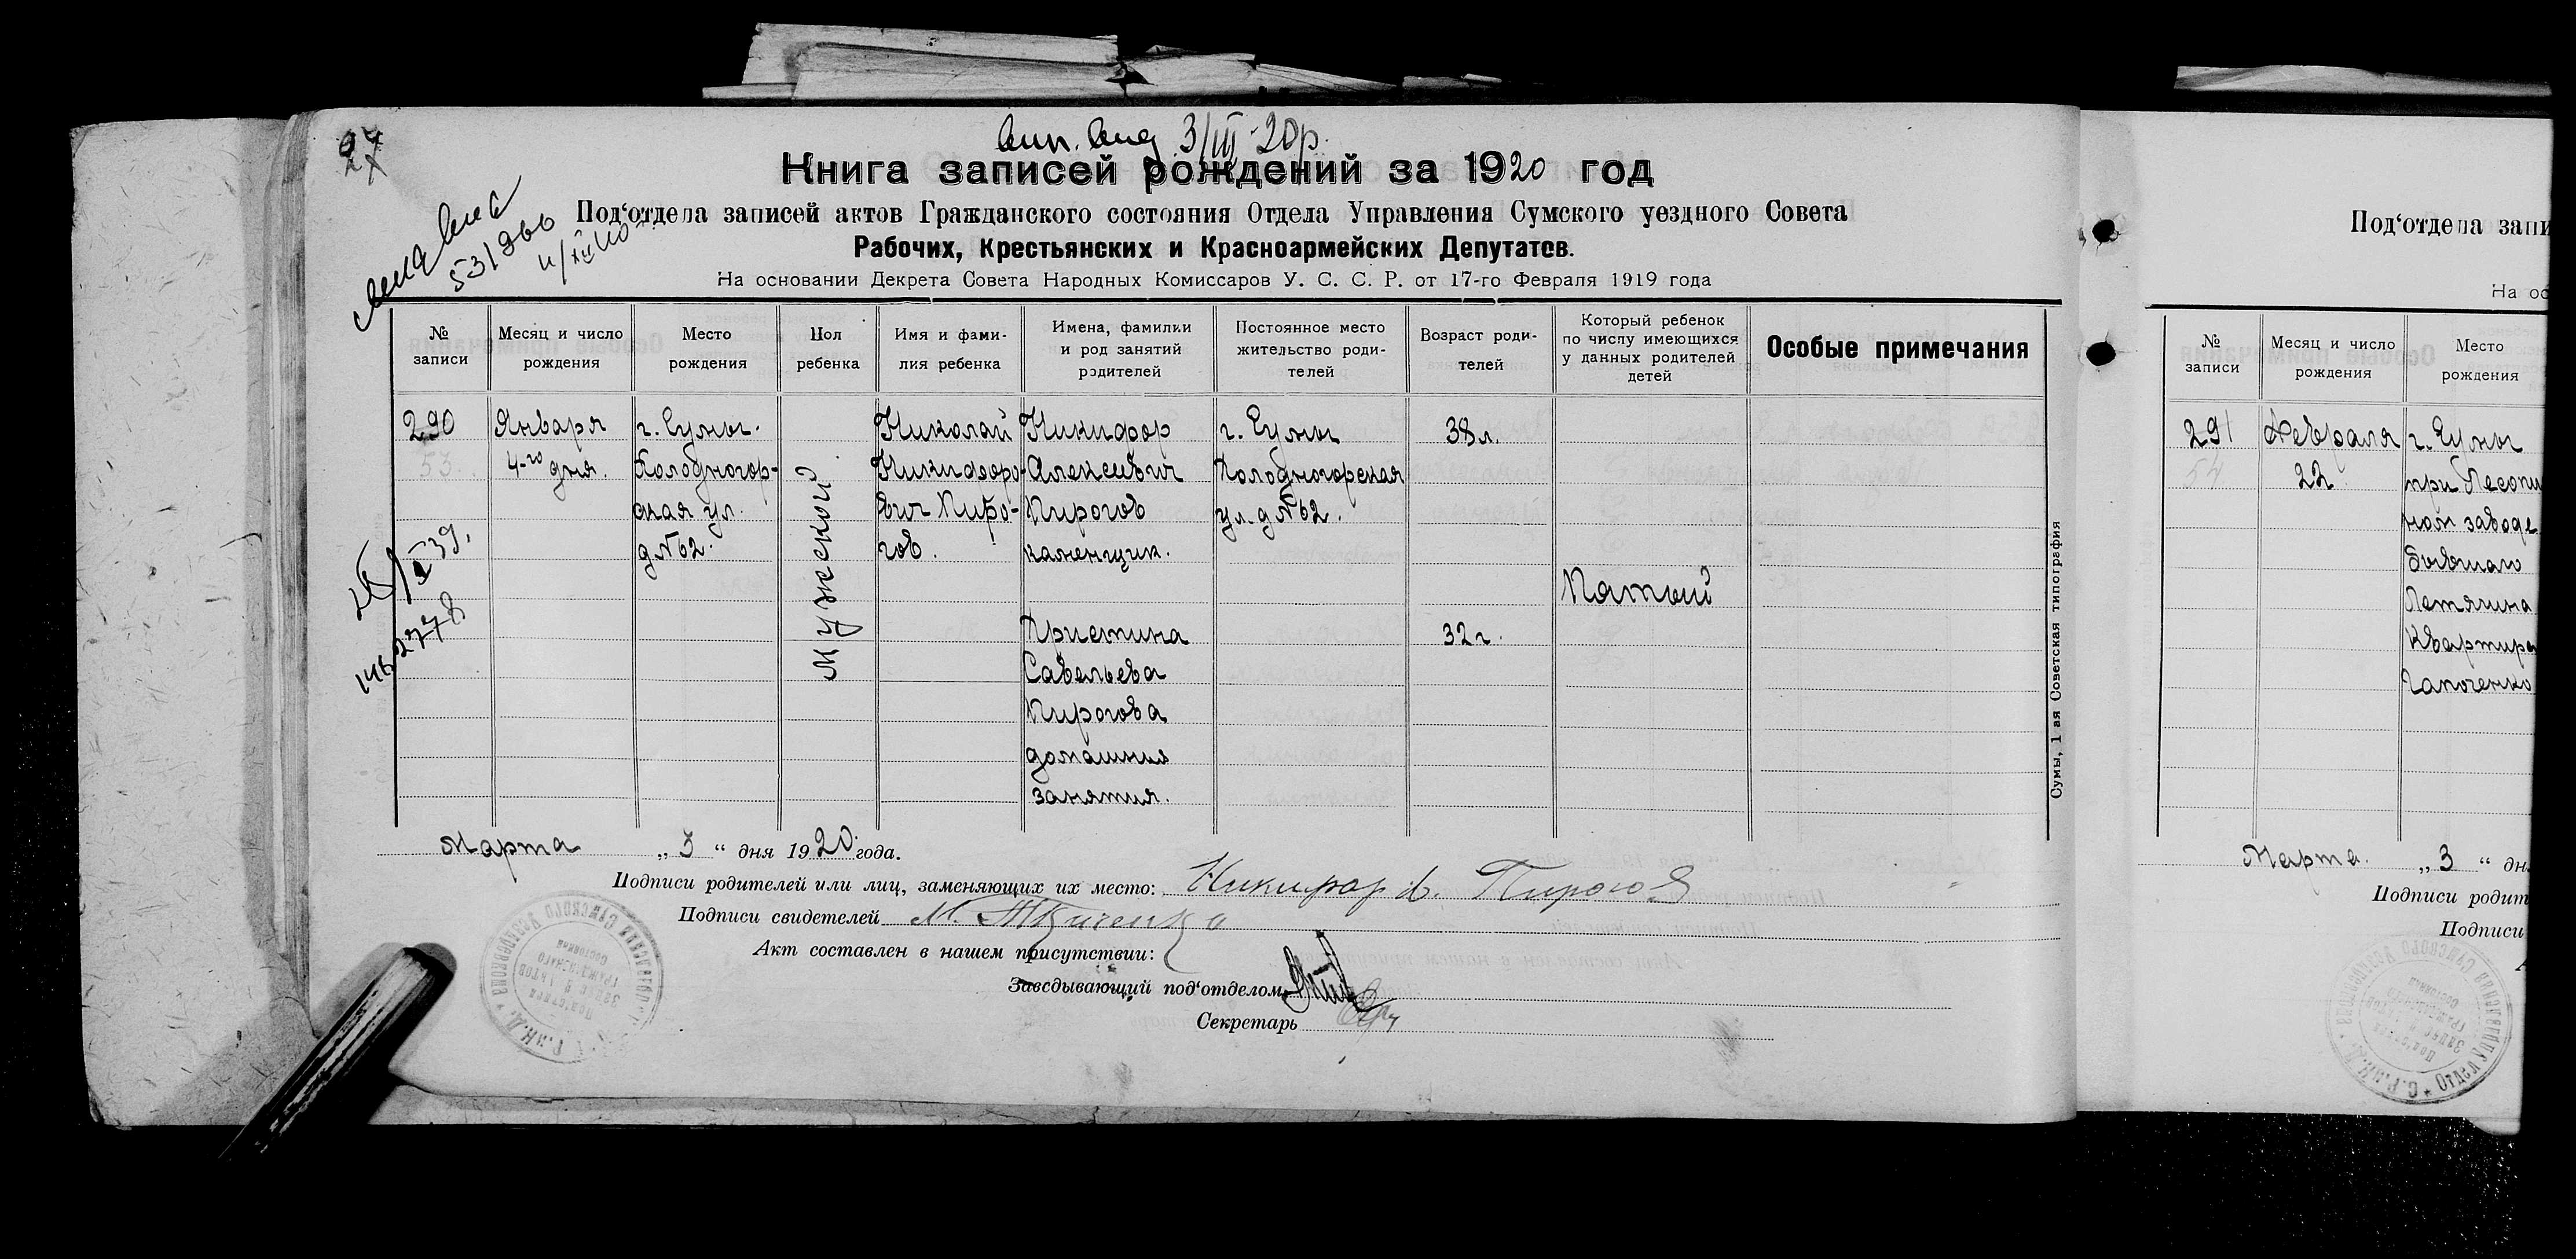 27
вип. вид 3/III-20р.
Книга записей рождений за 1920 год
Под‘отдела записей актов Гражданского состояния Отдела Управления Сумского уездного Совета
Рабочих, Крестьянских и Красноармейских Депутатов.
На основании Декрета Совета Народных Комиссаров У. С. С. Р. от 17-го Февраля 1919 года
№ записи
Месяц и число
рождения
Место
рождения
Пол
ребенка
Имя и фами-
лия ребенка
Имена, фамилии
и род занятий
родителей
Постоянное место
жительство роди-
телей
Возраст роди-
телей
Который ребенок
по числу имеющихся
у данных родителей
детей
Особые примечания
290
53
Января
4-го дня.
г. Сумы.
Холодногор-
ская ул.
д №62.
Мужской
Николай
Никифоро-
вич Пиро-
гов.
Никифор
Алексеевич
Пирогов
каменщик.
Христина
Савельева
Пирогова
домашния
занятия.
г. Сумы
Холодногорская
ул. д №62.
38 л.
32 г.
Пятый
Сумы, 1-ая Советская типография
Марта „ 3 “ дня 1920 года.
Подписи родителей или лиц, заменяющих их место: Никифор А. Пирогов
Подписи свидетелей М. Ткаченко
Акт составлен в нашем присутствии:
Заведывающий под‘отделом
Секретарь
Под‘отдела запи
На ос
№
записи
Месяц и число
рождения
Место
рождения
291
54
Февраля
22
г. Сумы
при Лесопи
ном заводе
бывшаго
Летягина
квартира
Гапоченко
Марта. „ 3 “ дн
Подписи родит
Подписи